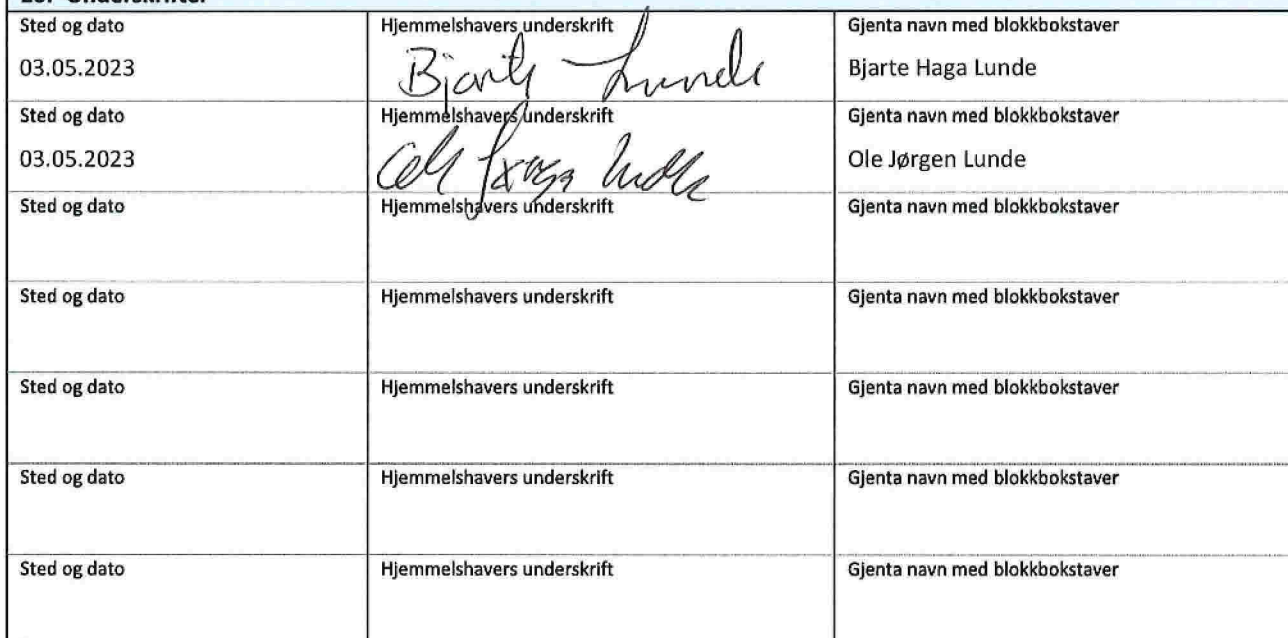 Underskrifter
Sted og dato Hjemmelshavers underskrift Gjenta navn med blokkbokstaver
03.05.2023 Bjarte Lunde Bjarte Haga Lunde
Sted og dato Hjemmelshavers underskrift Gjenta navn med blokkbokstaver
03.05.2023 Ole Jørgen Lunde
Sted og dato Hjemmelshavers underskrift Gjenta navn med blokkbokstaver
Sted og dato Hjemmelshavers underskrift Gjenta navn med blokkbokstaver
Sted og dato Hjemmelshavers underskrift Gjenta navn med blokkbokstaver
Sted og dato Hjemmelshavers underskrift Gjenta navn med blokkbokstaver
Sted og dato Hjemmelshavers underskrift Gjenta navn med blokkbokstaver